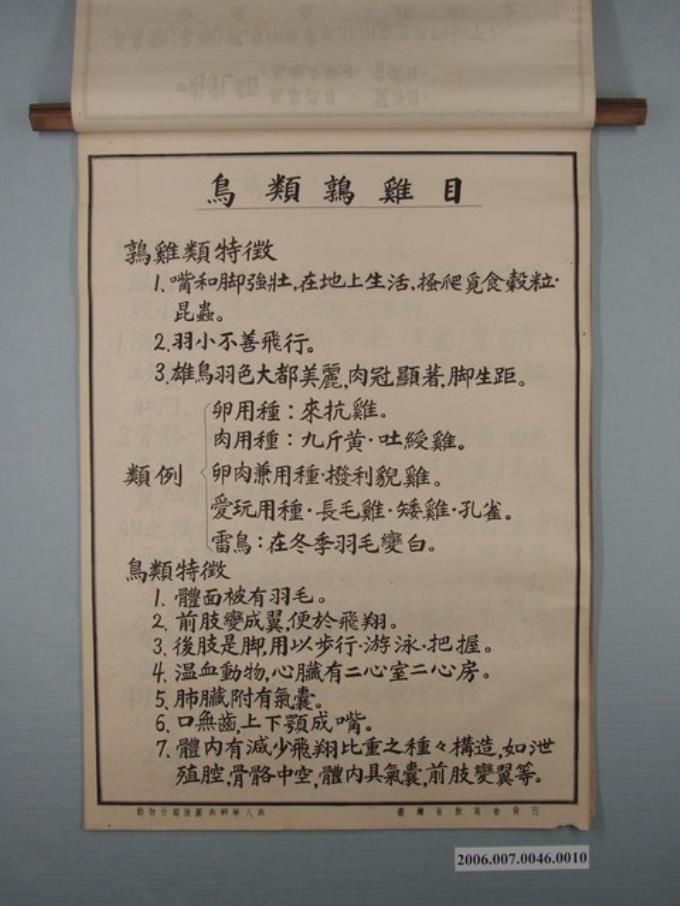 鳥類鶉雞目
鶉雞類特徵
1.嘴和脚強壯,在地上生活,搔爬覓食穀粒·
昆蟲。
2.羽小不善飛行。
3.雄鳥羽色大都美麗,肉冠顯著,脚生距。
類例
卵用種：來抗雞。
肉用種：九斤黄·吐綬雞。
卵肉兼用種·撥利貌雞。
愛玩用種·長毛雞·矮雞·孔雀。
雷鳥：在冬季羽毛變白。
鳥類特徵
1.體面被有羽毛。
2.前肢變成翼,便於飛翔。
3.後肢是脚,用以步行·游泳·把握。
4.温血動物,心臟有二心室二心房。
5.肺臟附有氣囊。
6.口無齒,上下顎成嘴。
7.體內有減少飛翔比重之種々構造,如泄
殖腔,骨骼中空,體內具氣囊,前肢變翼等。
臺灣省教育會發行
2006.007.0046.0010